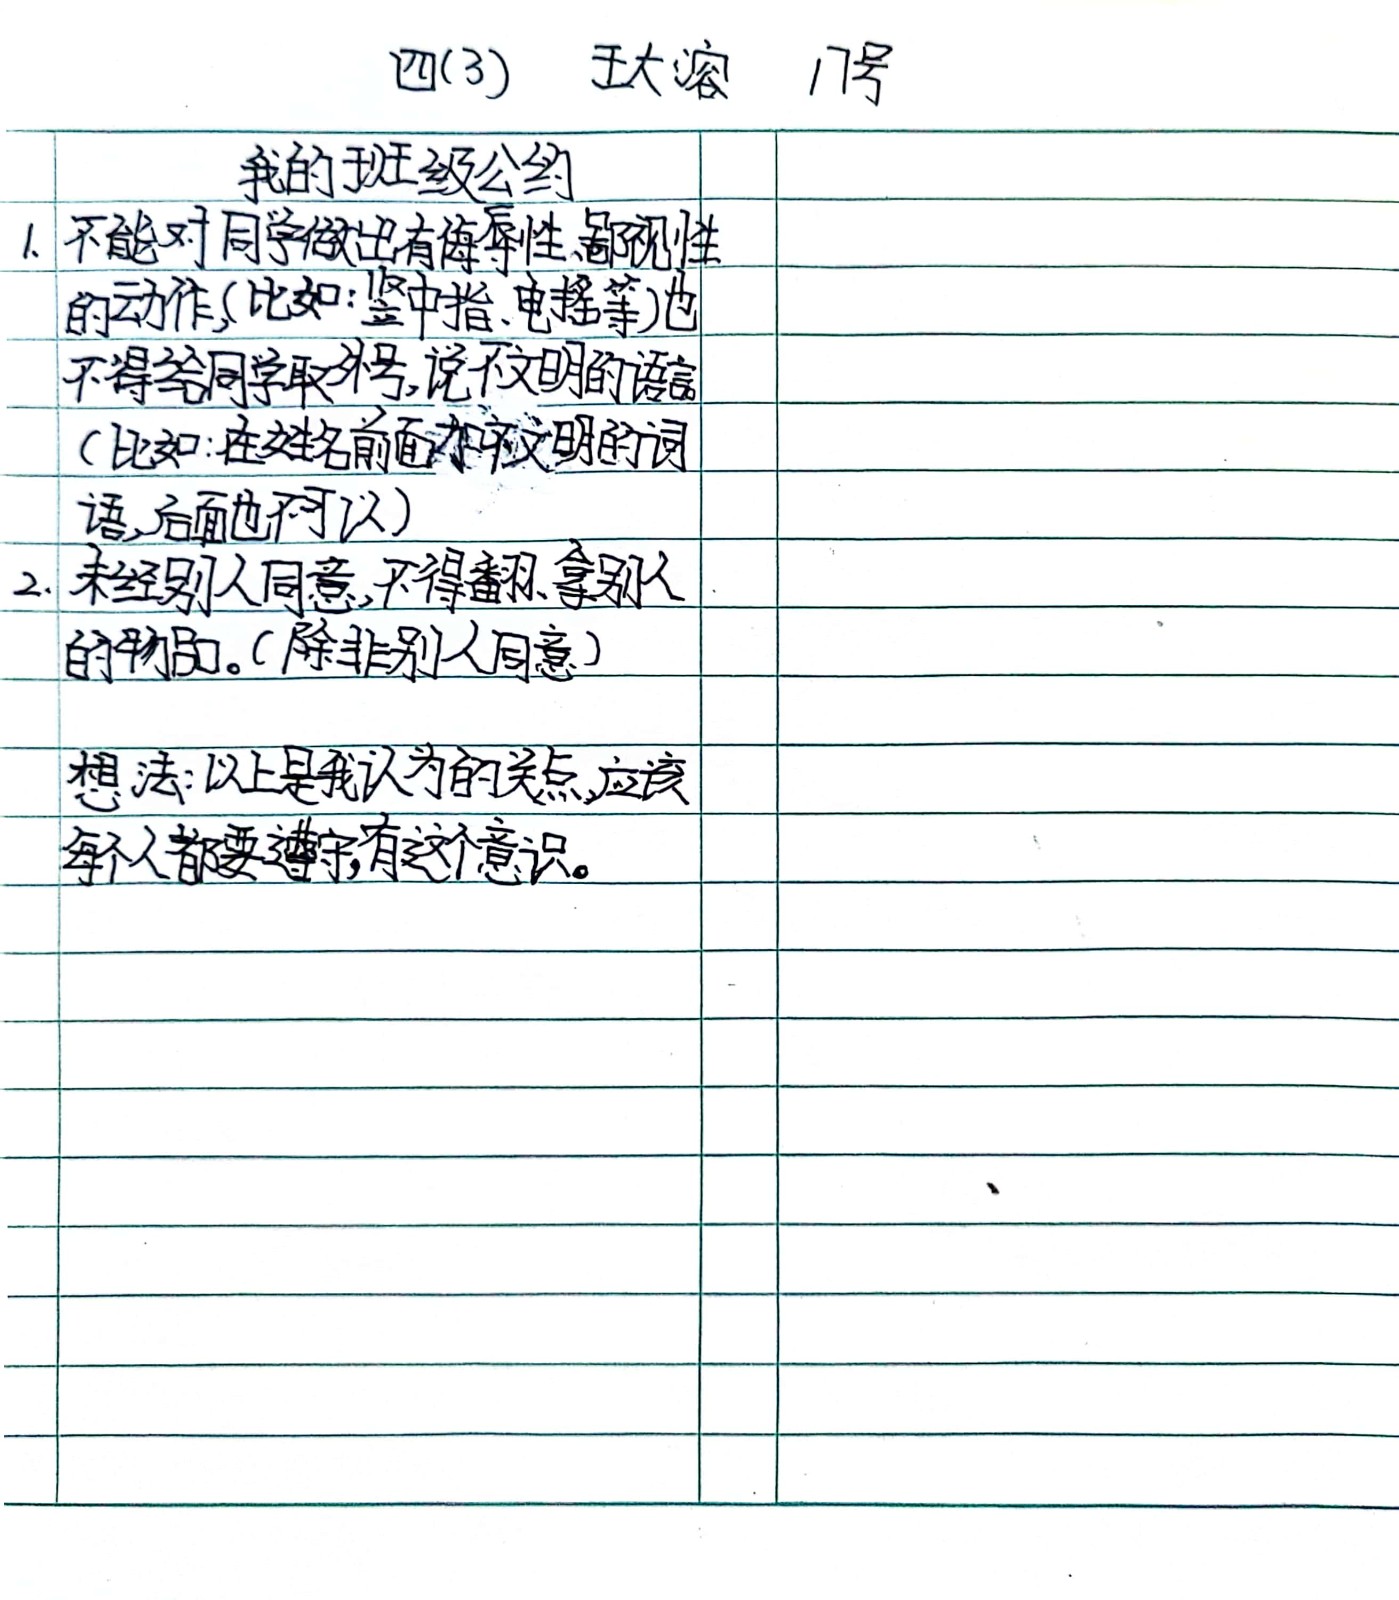 四(3) 王大溶 17号
我的班级公约
1. 不能对同学做出有侮辱性、鄙视性
的动作,(比如:竖中指、电摇等)也
不得给同学取外号,说不文明的语言
(比如:在姓名前面加不文明的词
语,后面也不可以)
2. 未经别人同意,不得翻、拿别人
的物品。(除非别人同意)
想法:以上是我认为的关点,应该
每个人都要遵守,有这个意识。